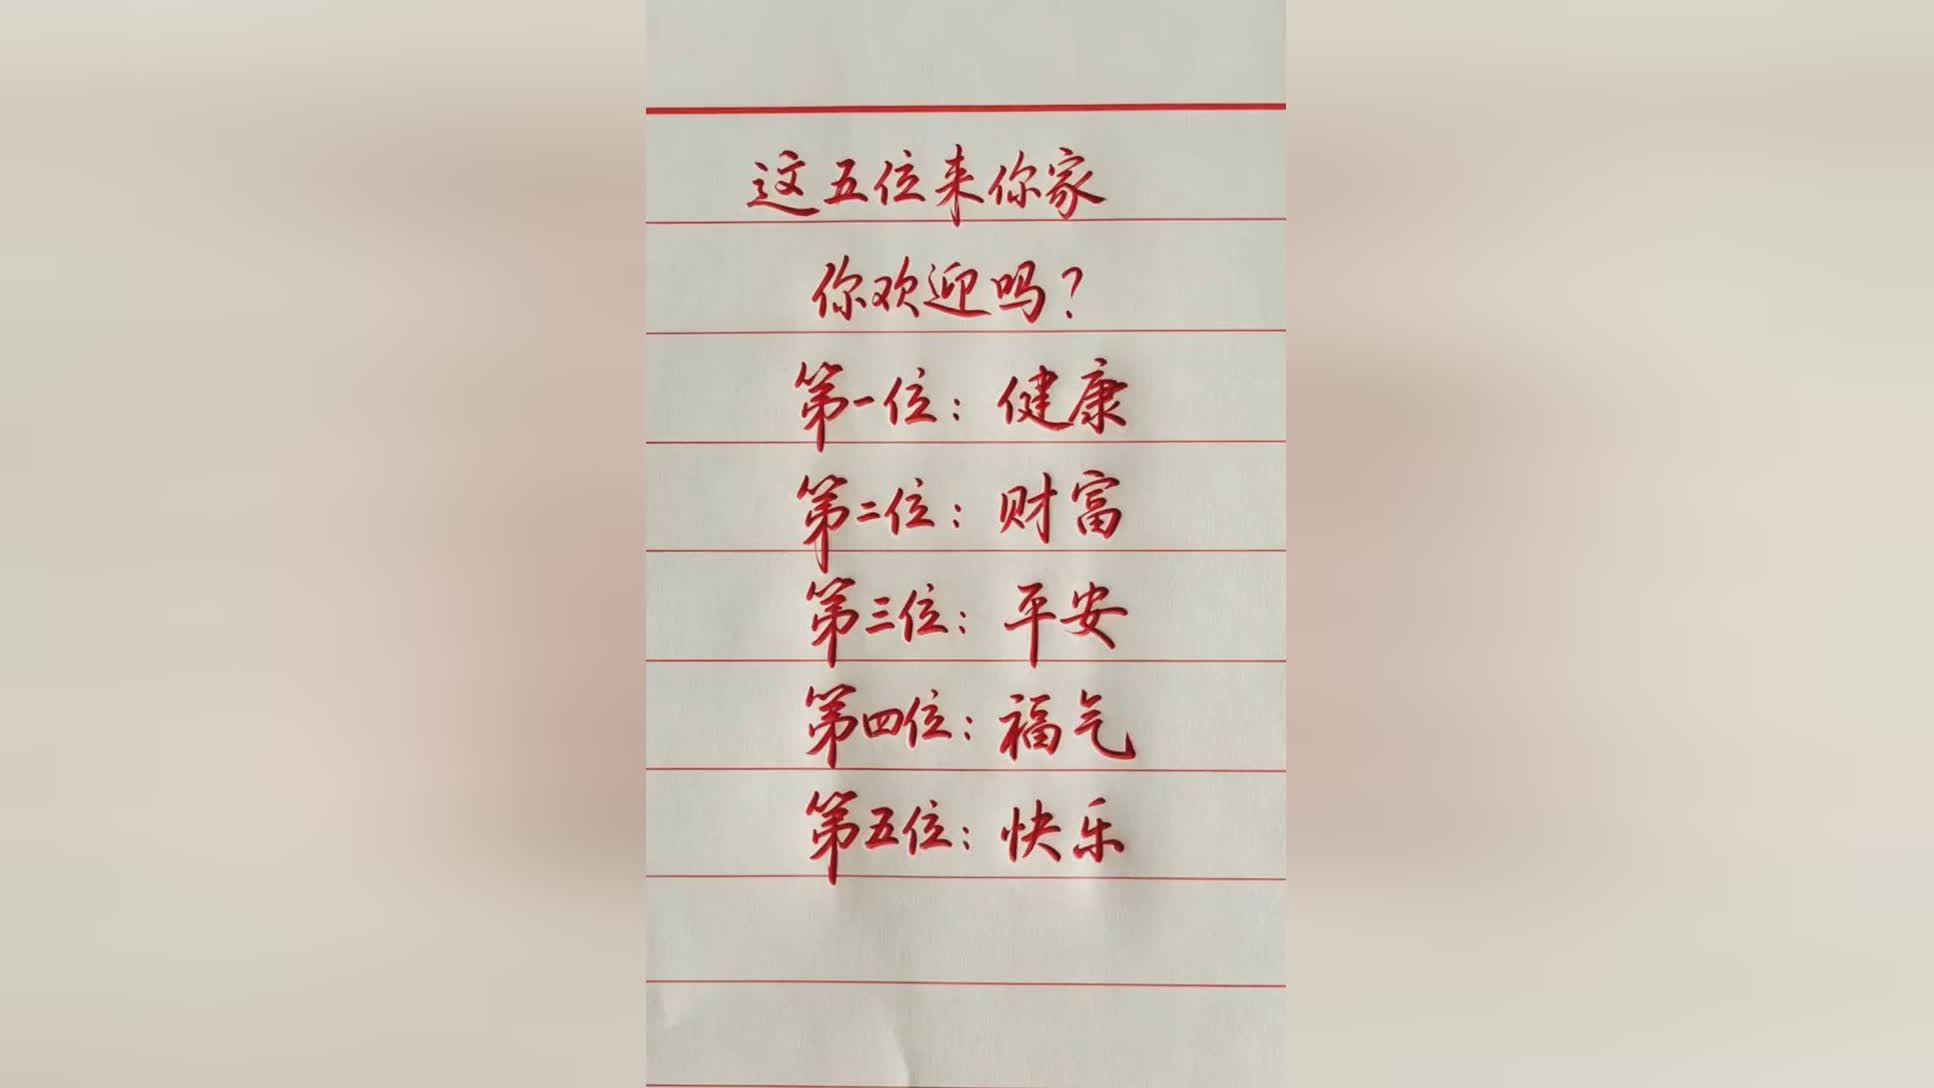 这五位来你家
你欢迎吗？
第一位：健康
第二位：财富
第三位：平安
第四位：福气
第五位：快乐